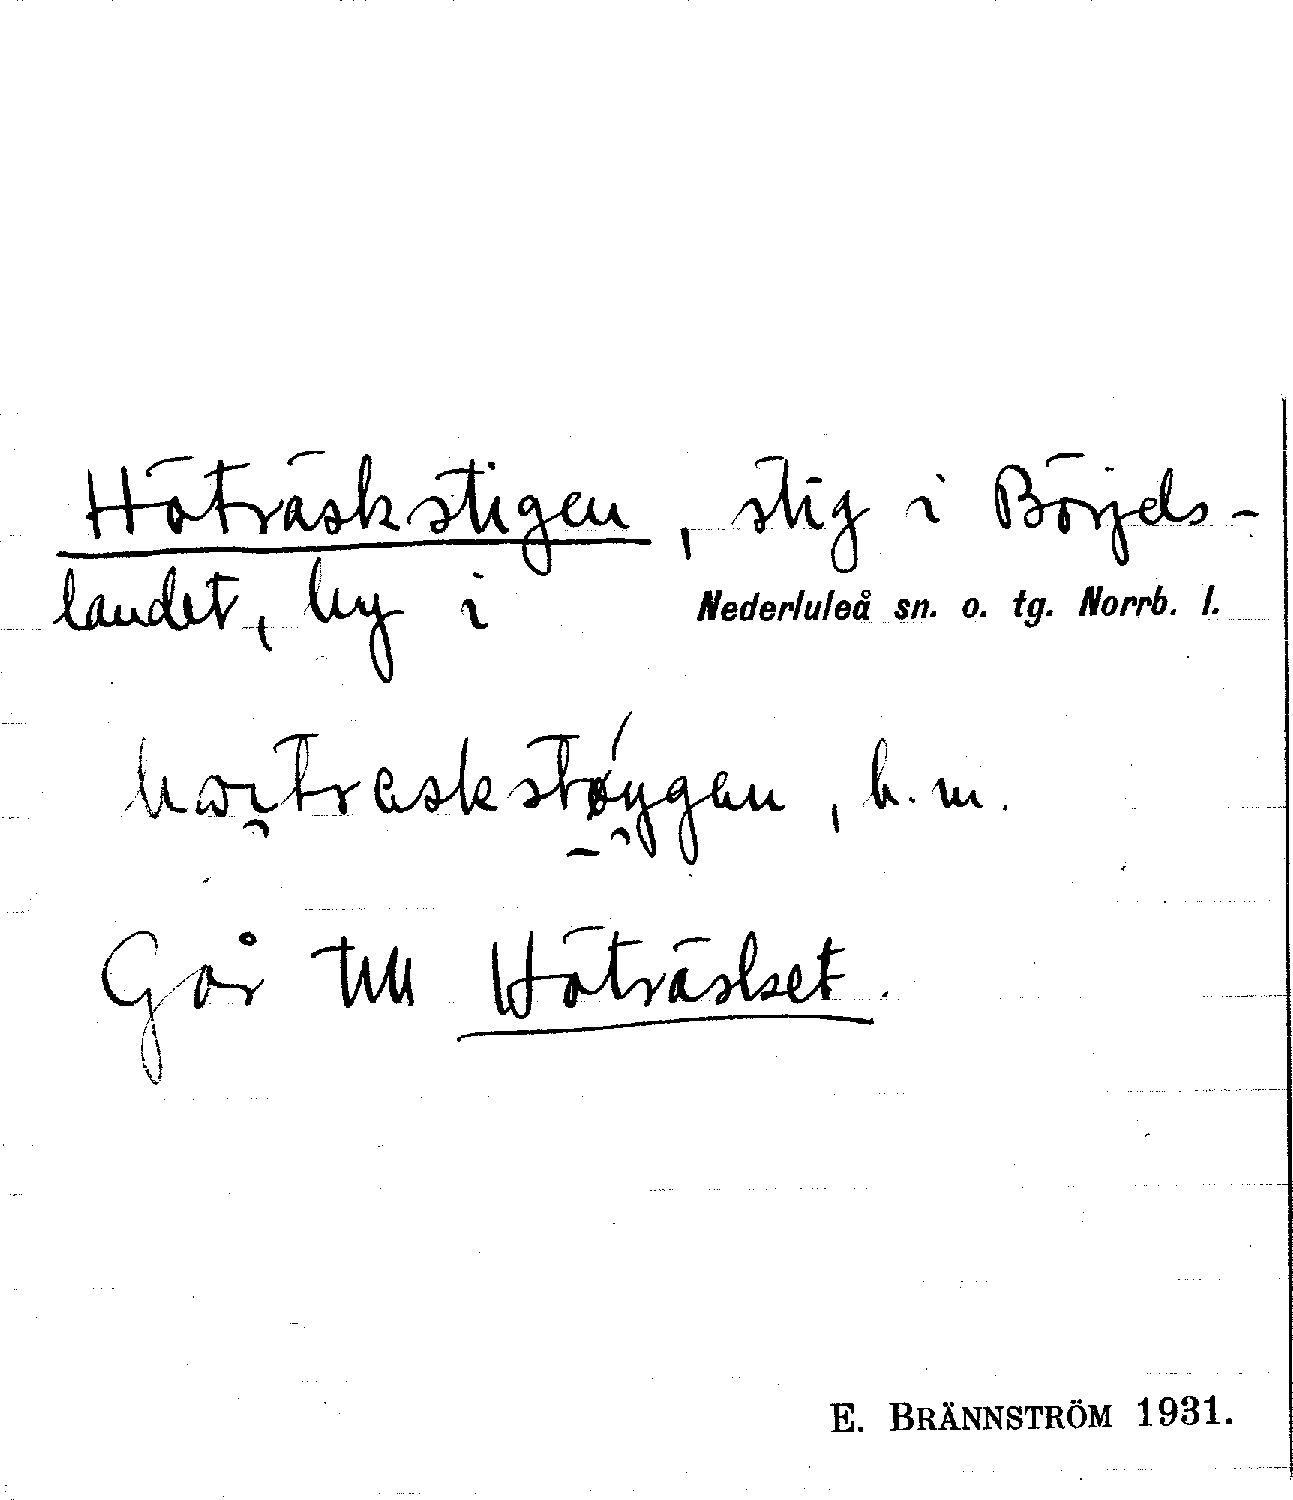 Höträskstigen, stig i Börjels-
landet, by i Nederluleå sn. o. tg. Norrb. l.
b. m.
Går till Höträsket.
E. BRÄNNSTRÖM 1931.